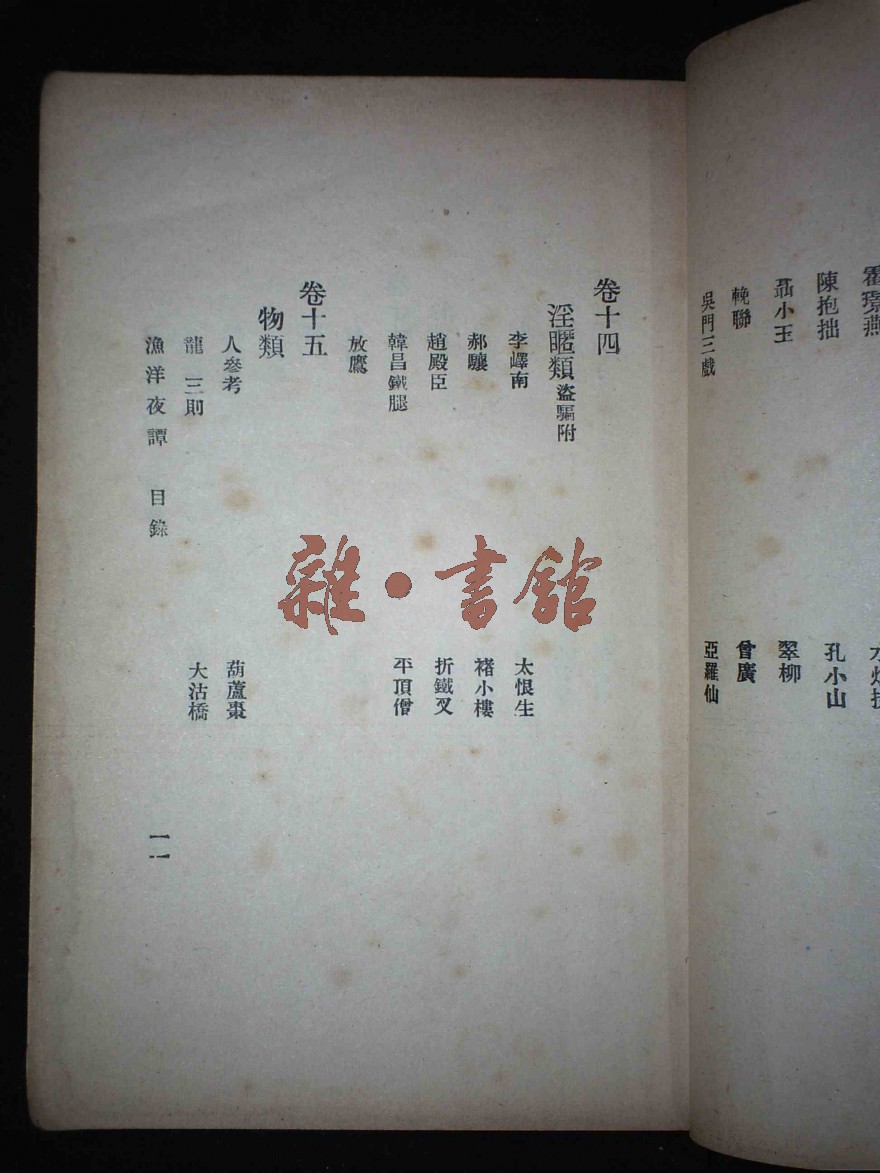 陳抱拙
孔小山
聶小玉
翠柳
輓聯
曾廣
吳門三戲
亞羅仙
卷十四
淫暱類 盜騙附
李嶧南
太恨生
郝驤
褚小樓
趙殿臣
折鐵叉
韓昌鐵腿
平頂僧
放鷹
卷十五
物類
人參考
葫蘆棗
龍 三則
大沽橋
漁洋夜譚 目錄
一一
雜·書館